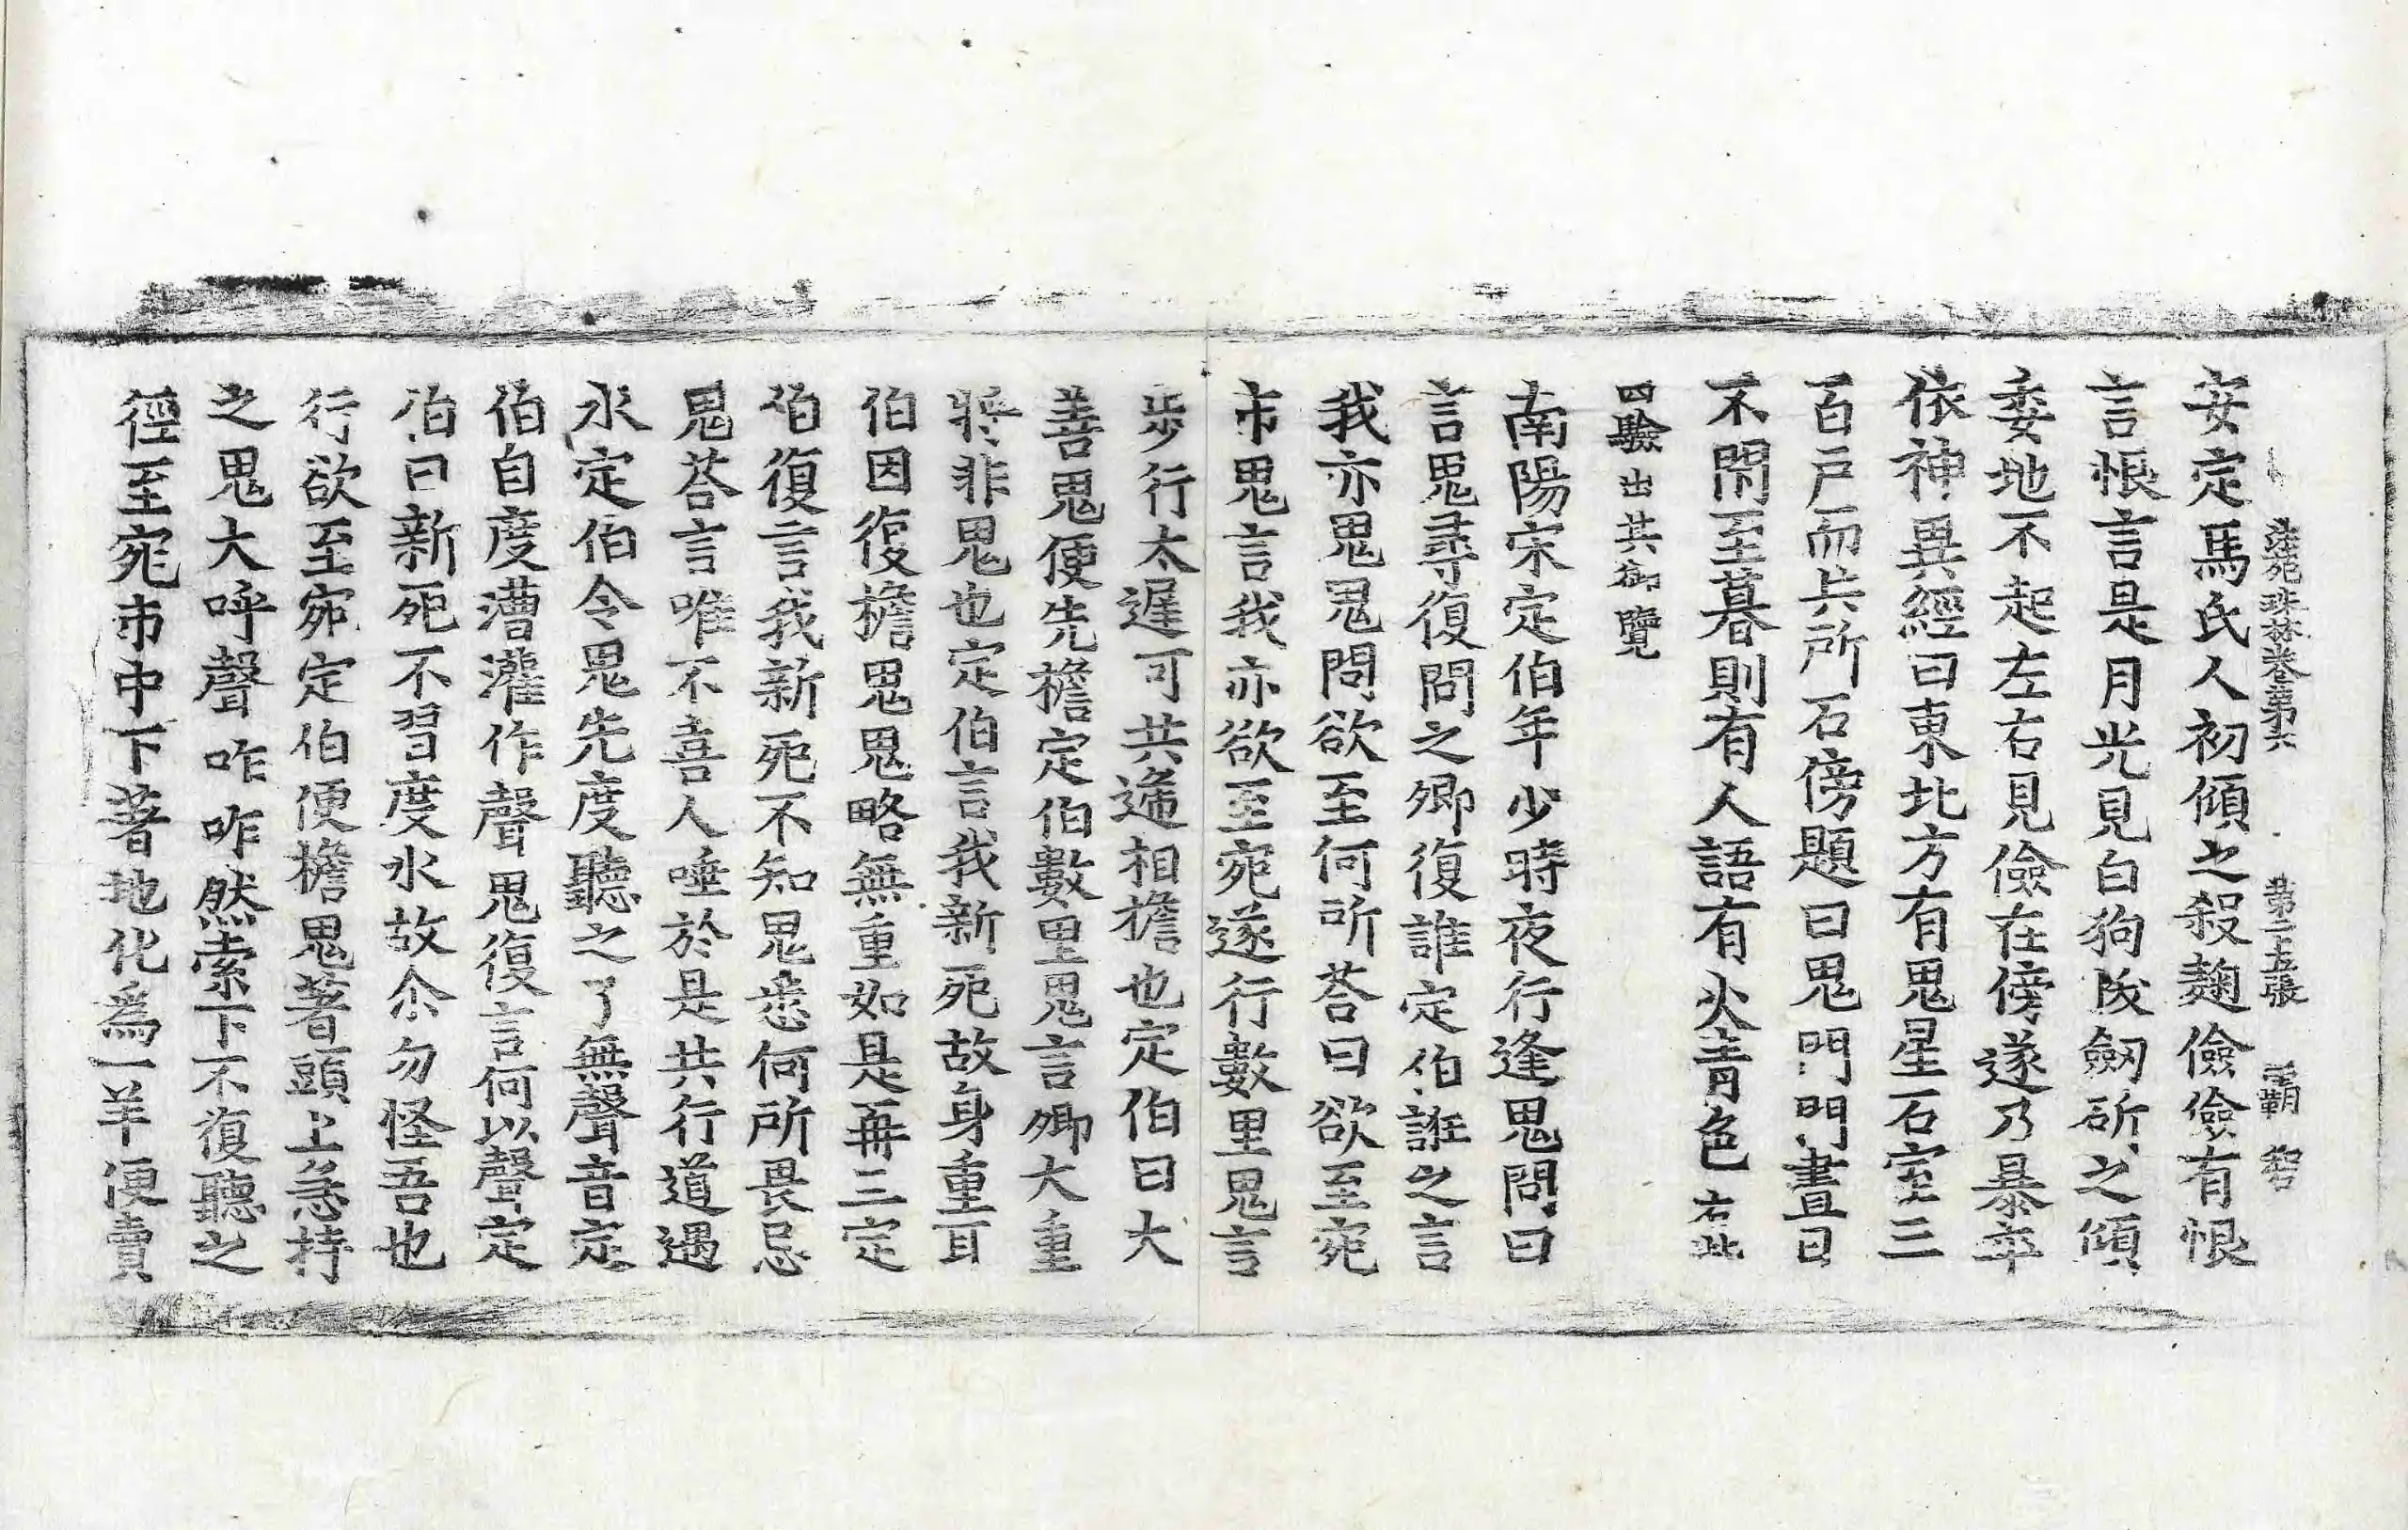 法苑珠林卷第六　第二十五張　覇
安定馬氏人初傾之殺麹儉儉有恨
言恨言是月光見白狗拔劒斫之傾
委地不起左右見儉在傍遂乃暴卒
依神異經曰東北方有鬼星石室三
百戶而共所石傍題曰鬼門門晝日
不閉至暮則有人語有火青色 右此
四驗出其御覽
南陽宋定伯年少時夜行逢鬼問曰
言鬼尋復問之卿復誰定伯誑之言
我亦鬼鬼問欲至何所荅曰欲至宛
市鬼言我亦欲至宛遂行數里鬼言
步行太遲可共遞相擔也定伯曰大
善鬼便先擔定伯數里鬼言卿大重
將非鬼也定伯言我新死故身重耳
伯因復擔鬼鬼略無重如是再三定
伯復言我新死不知鬼悉何所畏忌
鬼荅言唯不喜人唾於是共行道遇
水定伯令鬼先度聽之了無聲音定
伯自度漕灌作聲鬼復言何以聲定
伯曰新死不習度水故尒勿怪吾也
行欲至宛定伯便擔鬼著頭上急持
之鬼大呼聲咋咋然索下不復聽之
徑至宛市中下著地化爲一羊便賣